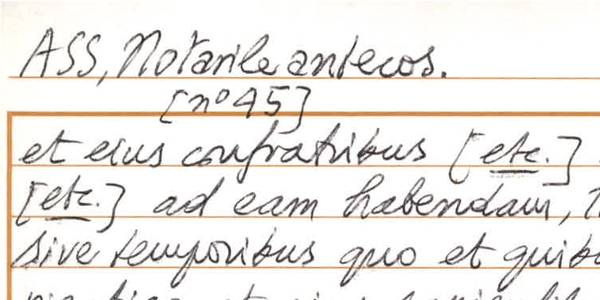 ASS, Notarile antecos.
[nº 45]
et eius confratribus [etc.]
[etc.] ad eam habendam,
sive temporibus quo et
et